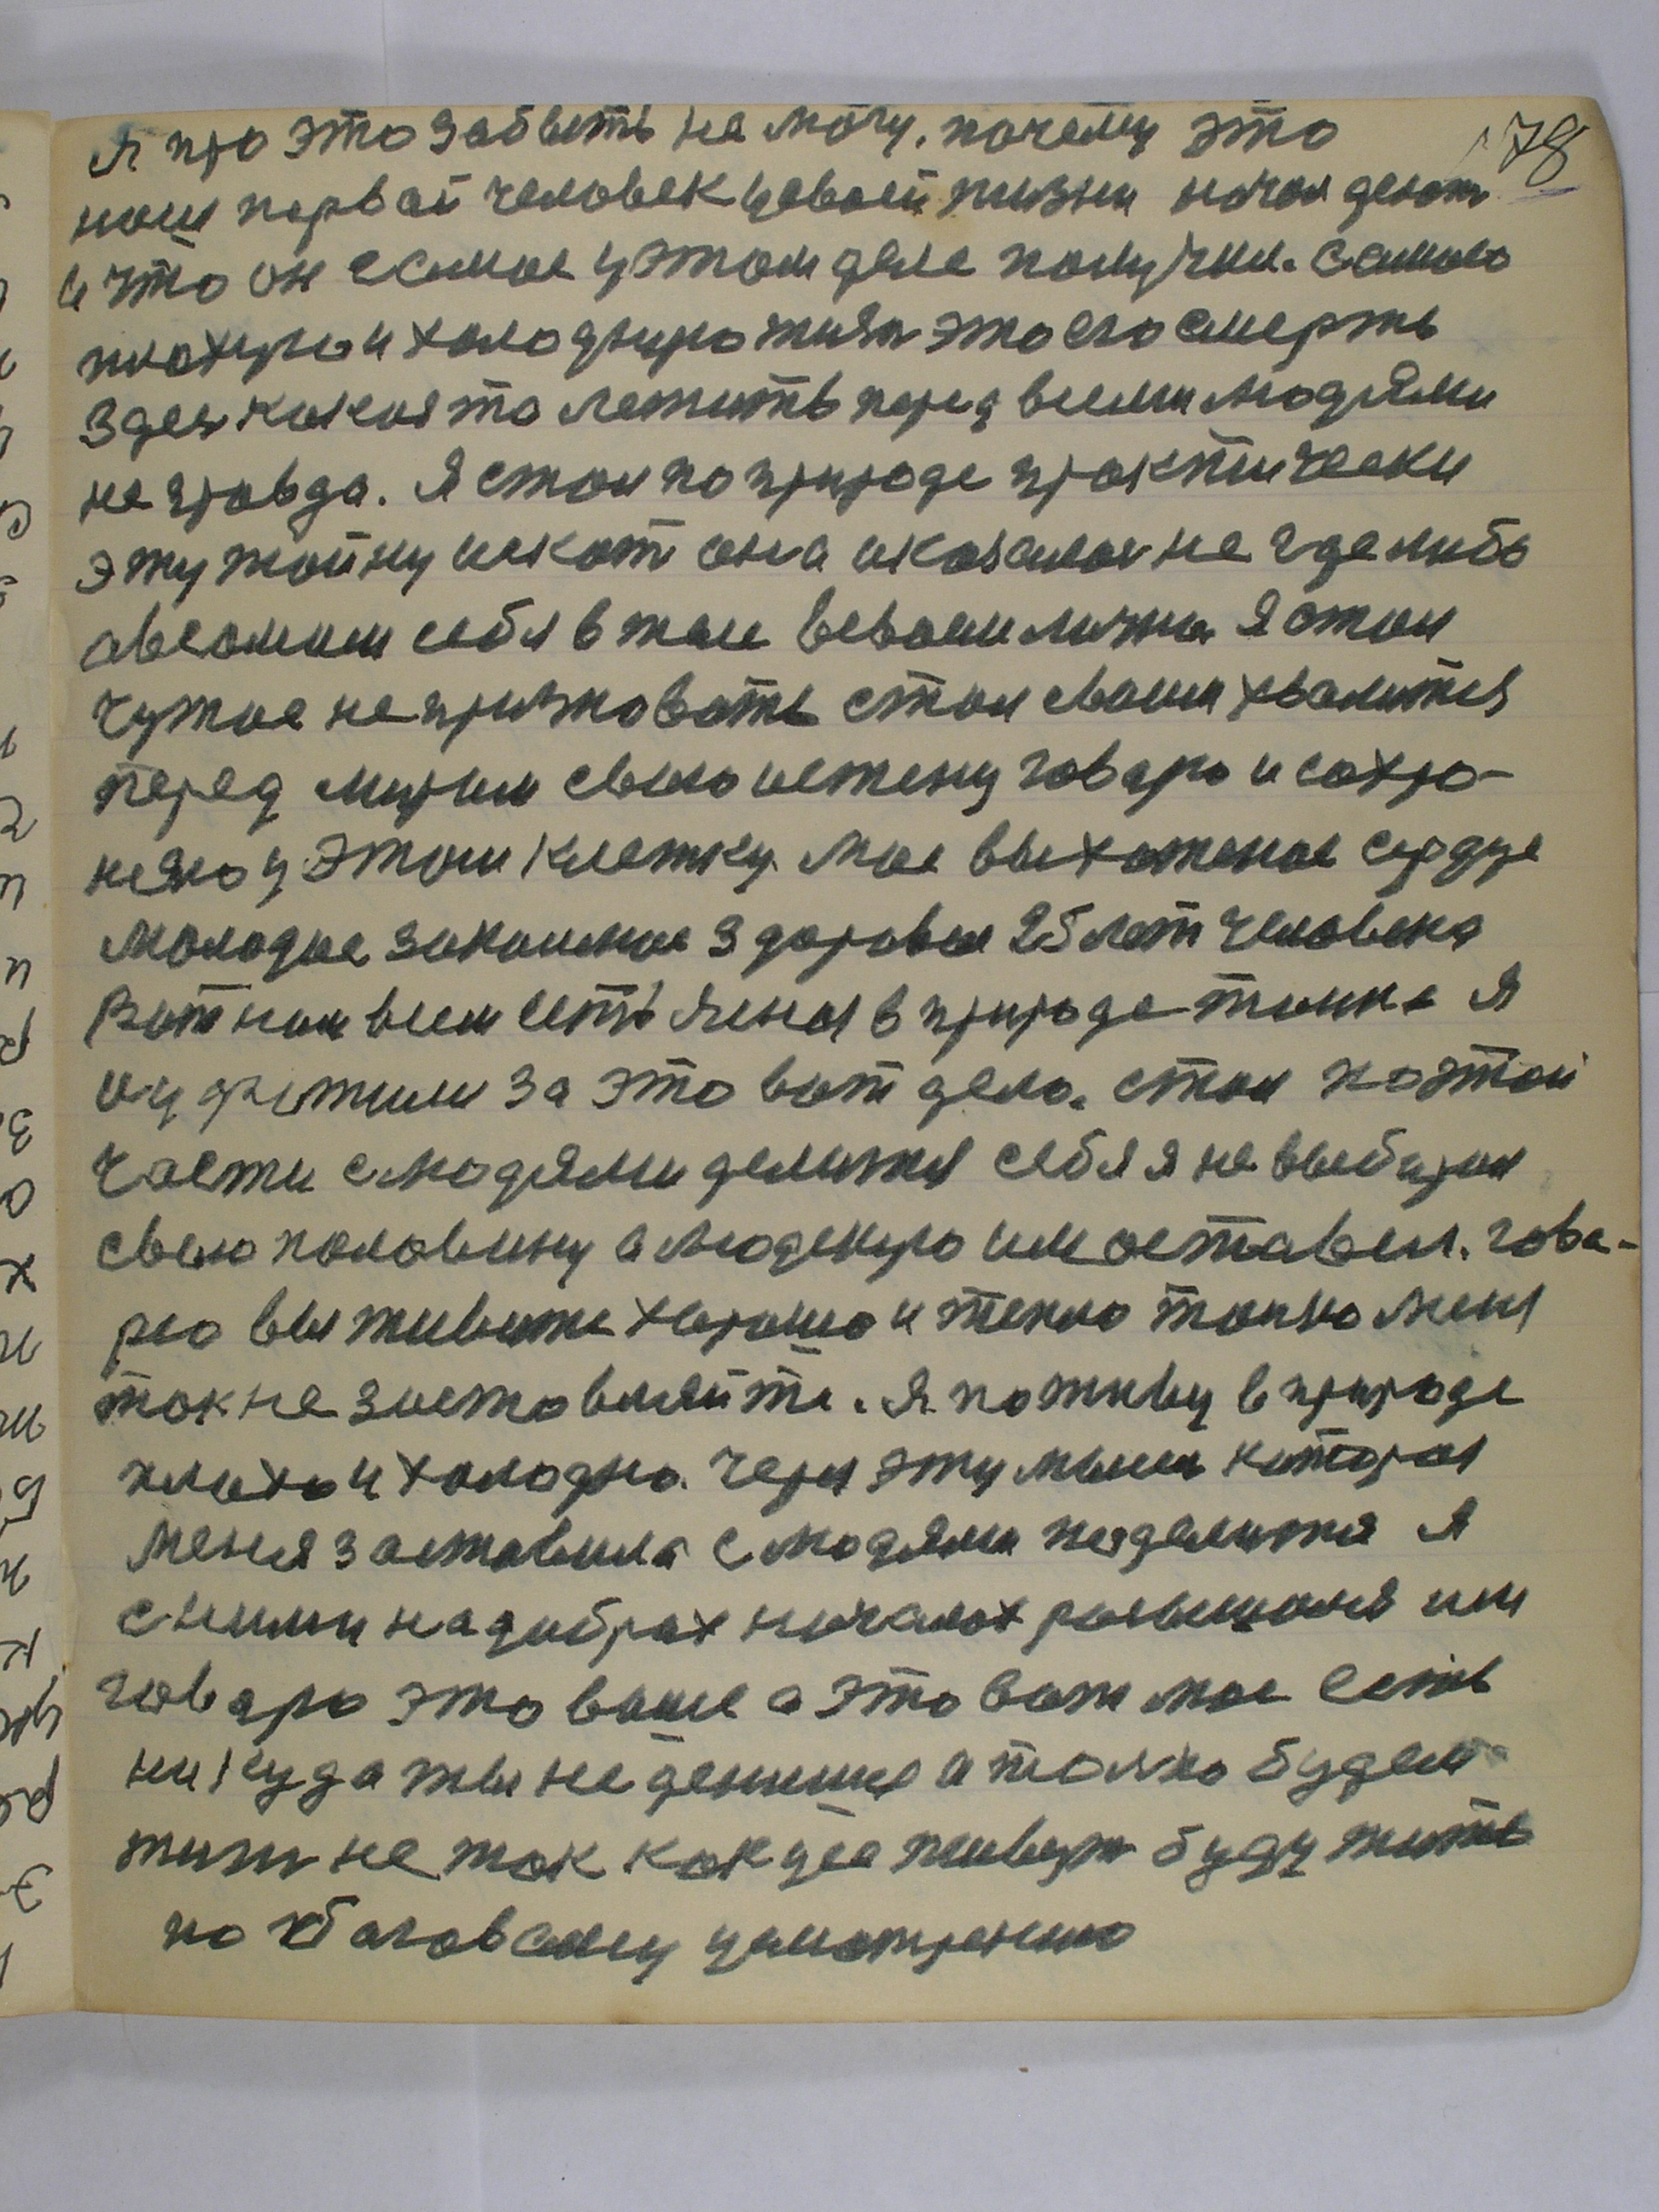 78
Я про это забыть не могу. почему это
наш первай человек усваей жизни начал делат
и что он самое уэтом деле получил. самаю
плохую и холодную жизн это его смерть
здес какаято лежить перед всеми людями
не правда. Я стал по природе практически
эту тайну искат она иказалас не где либо
авсамам себя в теле всваем лична Я стал
чужое не признавать стал сваим хвалится
перед миром свою истену говарю и сохра-
няю у этом клетку. мае выхоженае сердце
молодое заколенае здоровае 25 лет человека
Вот нам всем есть ясная в природе толка я
судржим за это вот дело. стал поэтой
части слюдями делится себя я не выбирал
сваю половину а людскую им оставел. гова-
рю вы живите хорошо и тепло только меня
так не заставляйте. Я поживу в природе
плохо и холодно. через эту мысль которая
меня заставила слюдями поделится я
сними надобрах началах росышолся им
говарю это ваше а это вот мое есть
никуда ты не денишс а только будем
жить не так как усе живут буду жить
по богавсаму усмотрению